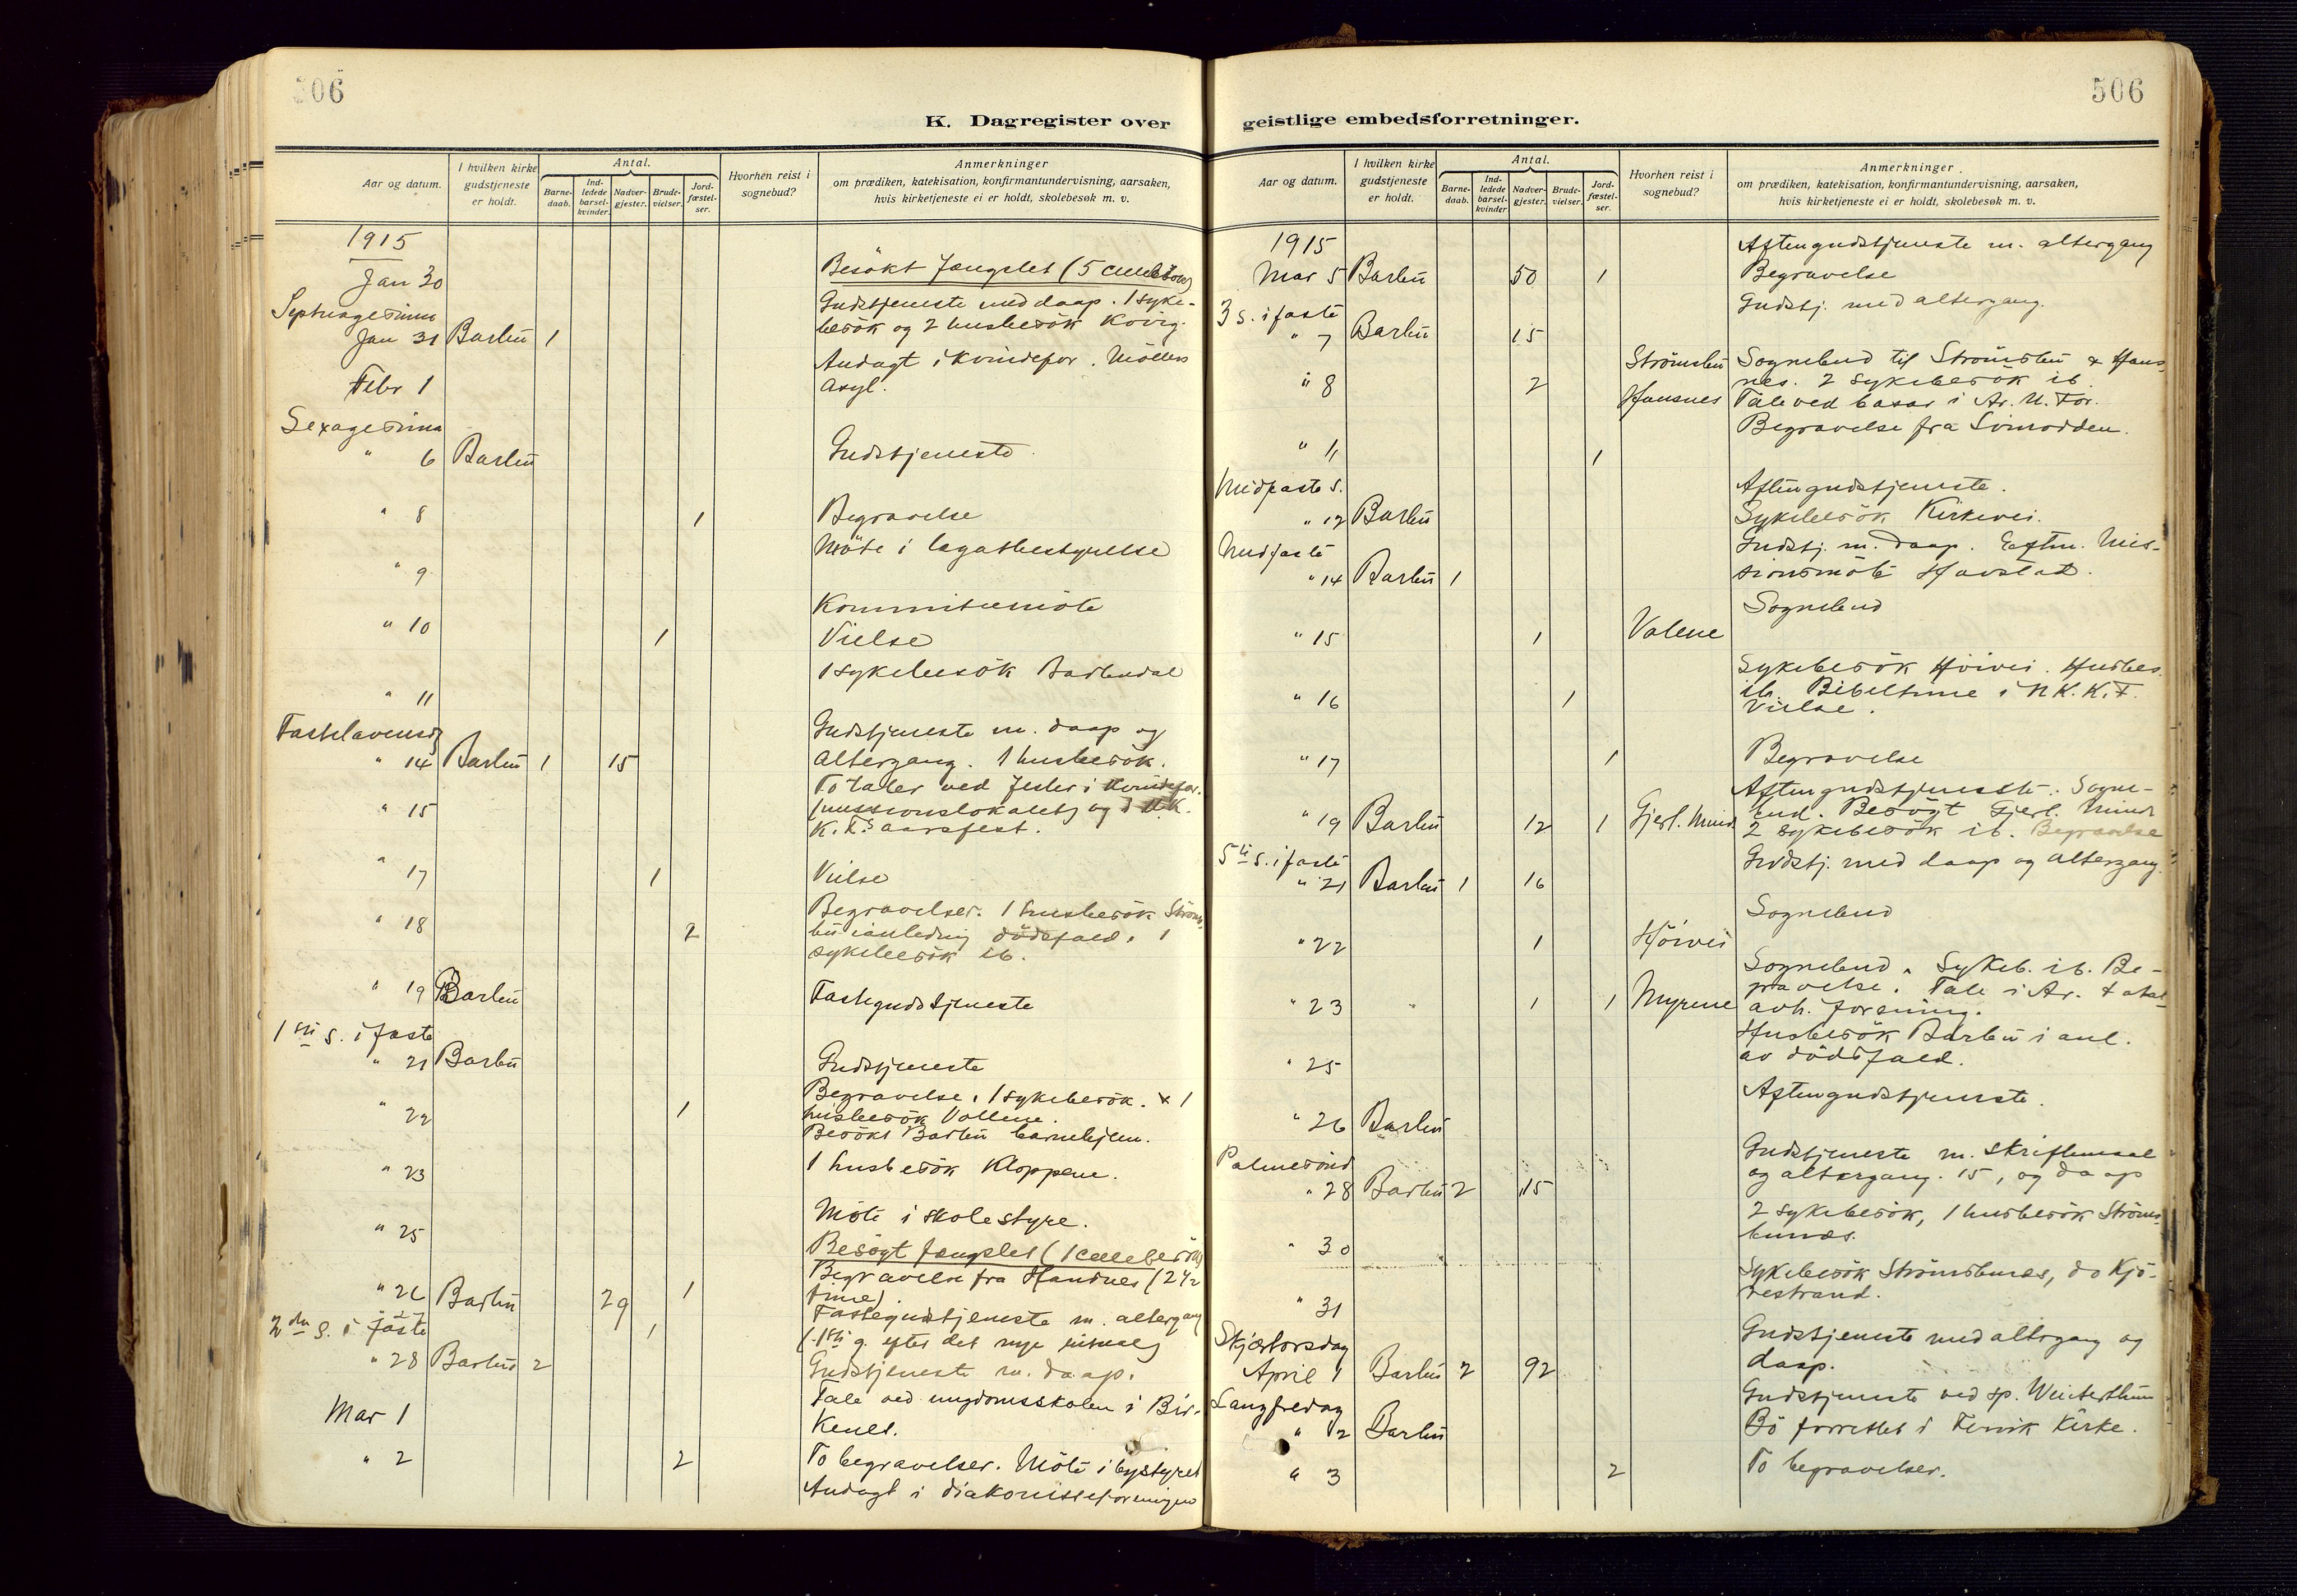 506
K. Dagregister over
Aar og datum.
I hvilken kirke gudstjeneste er holdt.
Antal.
Barne-daab.
Ind-ledede barsel-kvinder.
Nadver-gjester.
Brude-vielser.
Jord-fæstel-ser.
Hvorhen reist i sognebud?
Anmerkninger
om prædiken, katekisation, konfirmantundervisning, aarsaken,
hvis kirketjeneste ei er holdt, skolebesøk m. v.
1915
Jan 30 Besökt fængslet (5 cellebesök)
Septuagesima Gudstjeneste med daap. 1 syke-
Jan 31 Barbu 1 besök og 2 husbesök Kovig.
Andagt i kvindefor. Möllers
Febr 1 asyl.
Sexagesima
" 6 Barbu Gudstjeneste
" 8 1 Begravelse
Möte i legatbestyrelse
" 9
Kommitemöte
" 10 1 Vielse
1 sykebesök Barbudal
" 11
Fastelavensdg Gudstjeneste m. daap og
" 14 Barbu 1 15 altergang. 1 husbesök.
To taler ved fester i Kvindefor.
" 15 (missionslokalet) og i N.K.
K.F.s aarsfest.
" 17 1 Vielse
Begravelser. 1 husbesök Ströms-
" 18 2 bu i anledning dödsfald. 1
sykebesök ib.
" 19 Barbu Fastegudstjeneste
1ste s. i faste
" 21 Barbu Gudstjeneste
Begravelse. 1 sykebesök. + 1
" 22 1 husbesök Vollene.
Besökt Barbu barnehjem.
" 23 1 husbesök Kloppene.
Möte i skolestyre.
" 25
Besøgt fængslet (1 cellebesök)
Begravelse fra Handnes (2 1/2
" 26 Barbu 29 1 time).
2den s. i faste 1 Fastegudstjeneste m. altergang
(1ste g. efter det nye ritual)
" 28 Barbu 2 Gudstjeneste m. daap.
Tale ved ungdomsskolen i Bir-
Mar 1 kenes.
" 2 2 To begravelser. Möte i bystyret
Andagt i diakonisseforeningen
506
geistlige embedsforretninger.
Aar og datum.
I hvilken kirke gudstjeneste er holdt.
Antal.
Barne-daab.
Ind-ledede barsel-kvinder
Nadver-gjester.
Brude-vielser.
Jord-fæstel-ser.
Hvorhen reist i sognebud?
Anmerkninger
om prædiken, katekisation, konfirmantundervisning, aarsaken,
hvis kirketjeneste ei er holdt, skolebesøk m. v.
1915 Aftengudstjeneste m. altergang
Mar 5 Barbu 50 1 Begravelse
3 s. i faste Gudstj. med altergang.
" 7 Barbu 15
Strömsbu Sognebud til Strömsbu & Hans-
" 8 2 nes. 2 sykebesök ib.
Hansnes Tale ved basar i Ar. U. For.
Begravelse fra Sömodden.
" 11 1
Midfaste s. Aftengudstjeneste.
" 12 Barbu Sykebesök Kirkevei.
Midfaste Gudstj. m. daap. Eftm. Mis-
" 14 Barbu 1 sionsmöte Havstad.
Sognebud
" 15 1 Volene
Sykebesök Höivei. Husbes.
" 16 1 ib. Bibeltime i N.K.K.F.
Vielse.
" 17 1 Begravelse
Aftengudstjeneste. Sogne-
" 19 Barbu 12 1 Gjerl. Minde bud. Besögt Gjerl. Minde
2 sykebesök ib. Begravelse
5te s. i faste Gudstj. med daap og altergang.
" 21 Barbu 1 16
Sognebud
" 22 1 Höivei
Sognebud. Sykeb. ib. Be-
" 23 1 1 Myrene gravelse. Tale i Ar. total-
avh. forening.
Husbesök Barbu i anl.
" 25 av dödsfald.
Aftengudstjeneste.
" 26 Barbu
Palmesönd Gudstjeneste m. skriftemaal
" 28 Barbu 2 15 og altergang. 15, og daap
2 sykebesök, 1 husbesök Ströms-
" 30 bunes.
Sykebesök Strömsbunes, do Kjö-
" 31 restrand.
Skjærtorsdag Gudstjeneste med altergang og
April 1 Barbu 2 92 daap.
Langfredag Gudstjeneste ved sp. Winterthun
" 2 Barbu Bö forrettet i Færvik Kirke.
" 3 2 To begravelser.